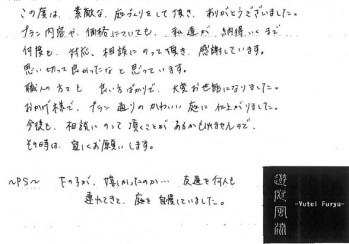 この度は、素敵な、庭づくりをして頂き、ありがとうございました。
プラン内容や、価格についても、私達が、納得いくまで
何度も、対応、相談にのって頂き、感謝しています。
思い切って良かったなと思っています。
職人の方々も良い方ばかりで、大変お世話になりました。
おかげ様で、プラン通りのかわいい庭に仕上がりました。
今後も、相談にのって頂くことがあるかもしれませんので、
その時は、宜しくお願いします。
～PS～ 下の子が、嬉しかったのか… 友達を何人も
連れてきて、庭を自慢していました。
遊庭風流
-Yutei Furyu-